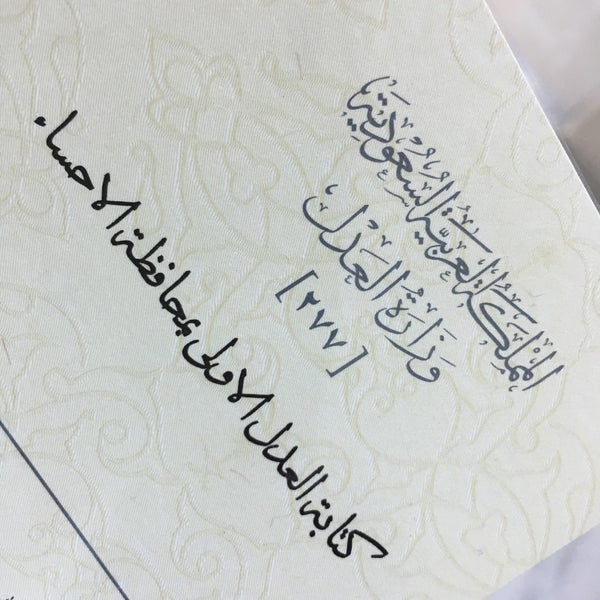 المملكة العربية السعودية
وزارة العدل
[٢٧٧]
كتابة العدل الاولى بمحافظة الاحساء